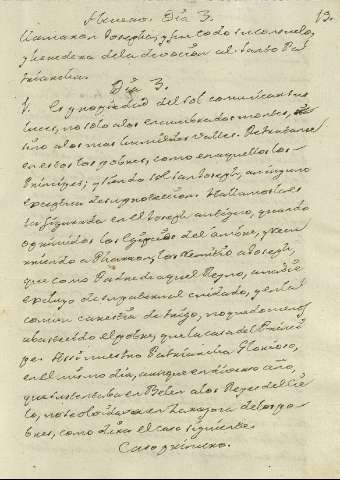 Dia 3. 13.
llamaron Joseph, y fue todo su consuelo,
y heredera de la devocion al Santo Pa
triarcha.
Dia 3.
1. Es propiedad del Sol comunicar sus
luces, no solo a los encumbrados montes,
sino a los mas humildes valles. Retratanse
en estos los pobres, como en aquellos los
Principes; y siendo Sol San Joseph, a ninguno
exceptua de su proteccion. Hallamos la
figurada en el Joseph antiguo, quando
oprimidos los Egipcios del ambre, y recu
rriendo a Pharaon, los remitio a Joseph,
que como Padre de aquel Reyno, a nadie
excluyo de su paternal cuidado, y en la
comun carestia de trigo, no quedo menos
abastecido el pobre, que la casa del Princi
pe. Assi nuestro Patriarcha Glorioso,
en el mismo dia, aunque en diverso año,
que sustentaba en Belen a los Reyes del Cie
lo, los pobres, como dira el caso siguiente.
Caso primero.